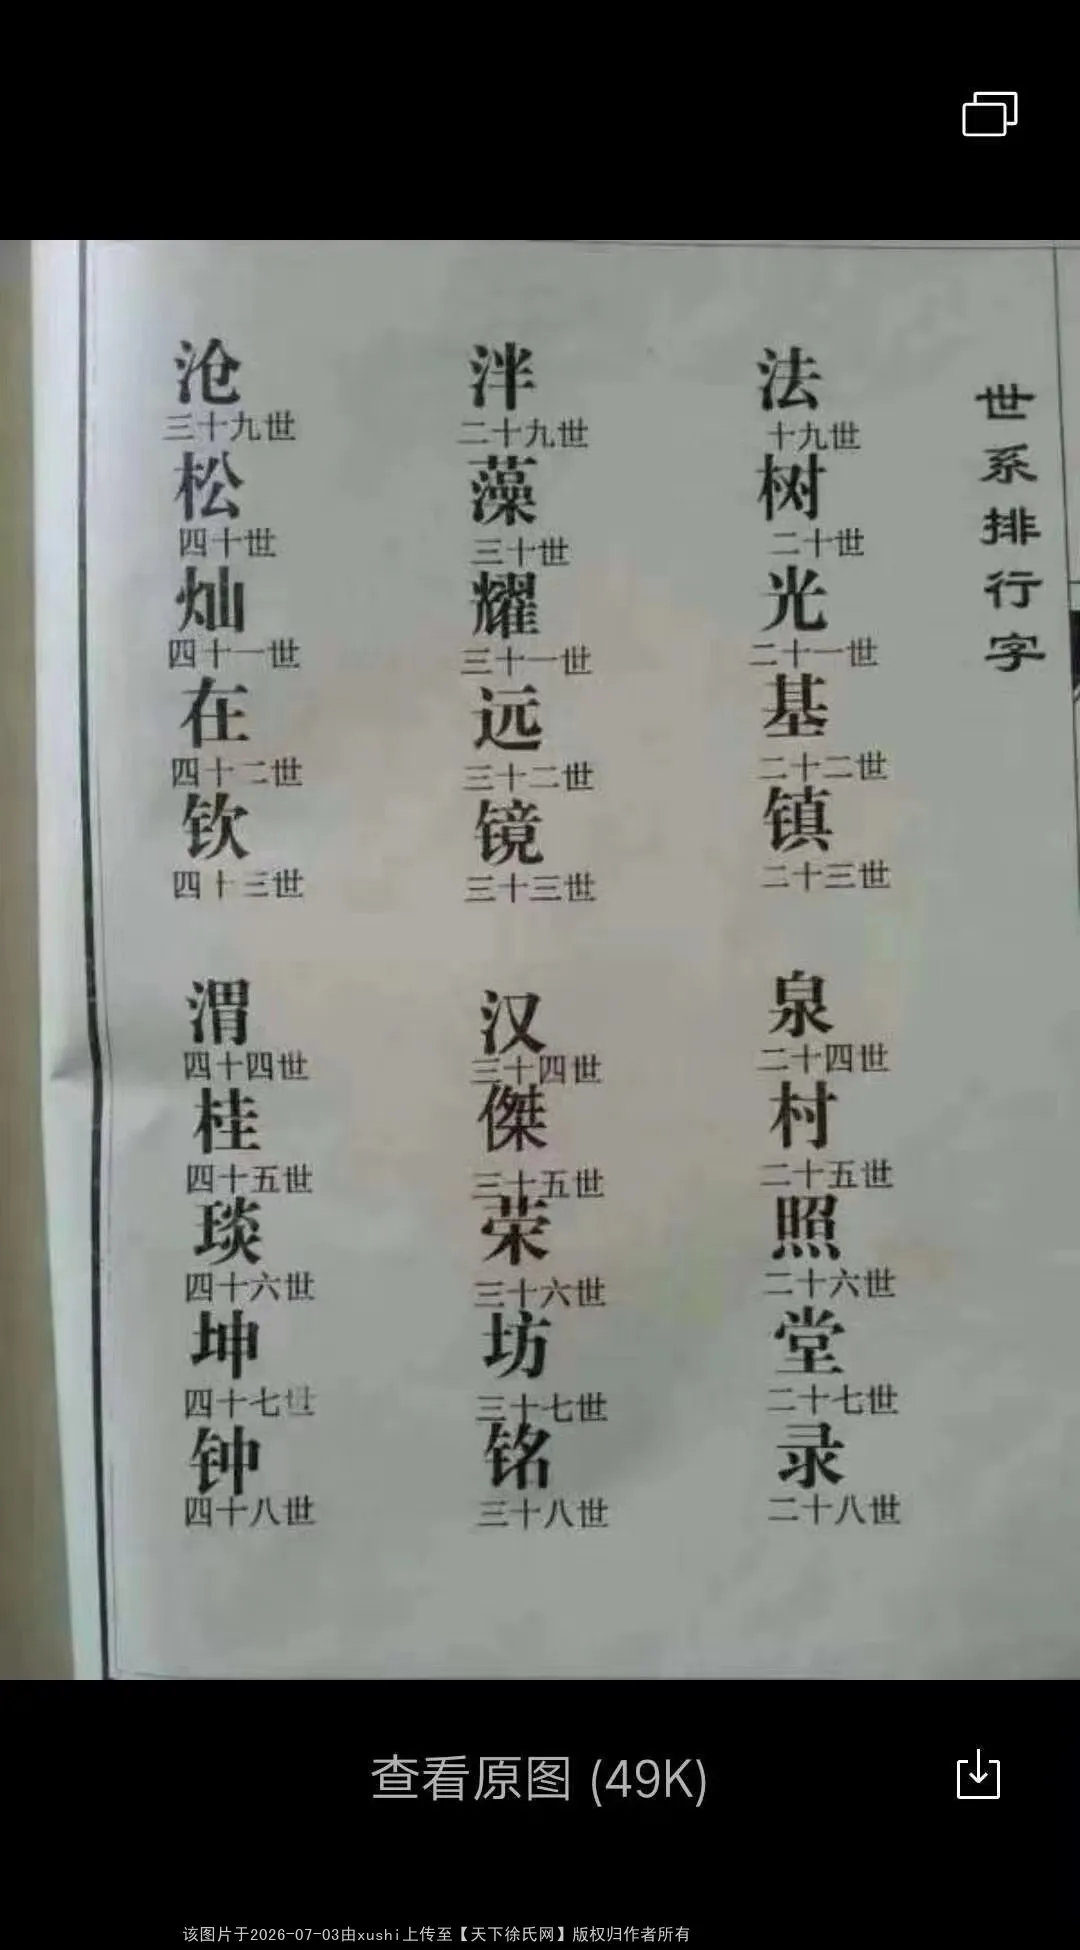 世系排行字
法
十九世
树
二十世
光
二十一世
基
二十二世
镇
二十三世
泉
二十四世
村
二十五世
照
二十六世
堂
二十七世
录
二十八世
泮
二十九世
藻
三十世
耀
三十一世
远
三十二世
镜
三十三世
汉
三十四世
傑
三十五世
荣
三十六世
坊
三十七世
铭
三十八世
沧
三十九世
松
四十世
灿
四十一世
在
四十二世
钦
四十三世
渭
四十四世
桂
四十五世
琰
四十六世
坤
四十七世
钟
四十八世
查看原图 (49K)
该图片于2026-07-03由xushi上传至【天下徐氏网】版权归作者所有